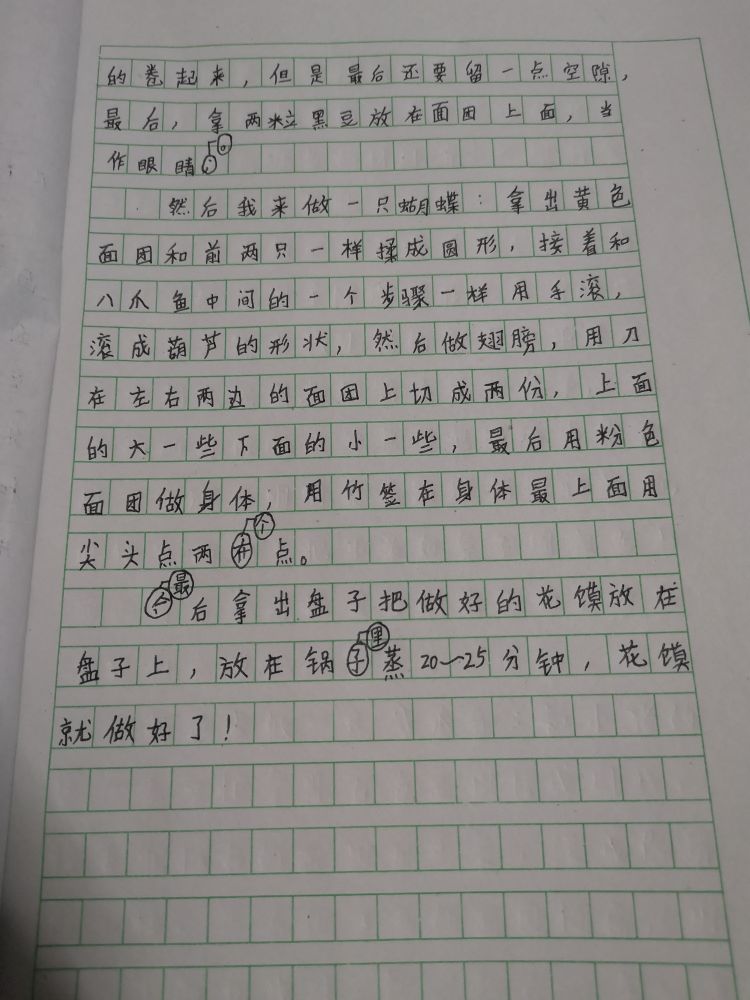 的卷起来，但是最后还要留一点空隙，
最后，拿两粒黑豆放在面团上面，当
作眼睛。
然后我来做一只蝴蝶：拿出黄色
面团和前两只一样揉成圆形，接着和
八爪鱼中间的一个步骤一样用手滚，
滚成葫芦的形状，然后做翅膀，用刀
在左右两边的面团上切成两份，上面
的大一些下面的小一些，最后用粉色
面团做身体，用竹签在身体最上面用
尖头点两个点。
最后拿出盘子把做好的花馍放在
盘子上，放在锅里蒸20—25分钟，花馍
就做好了！